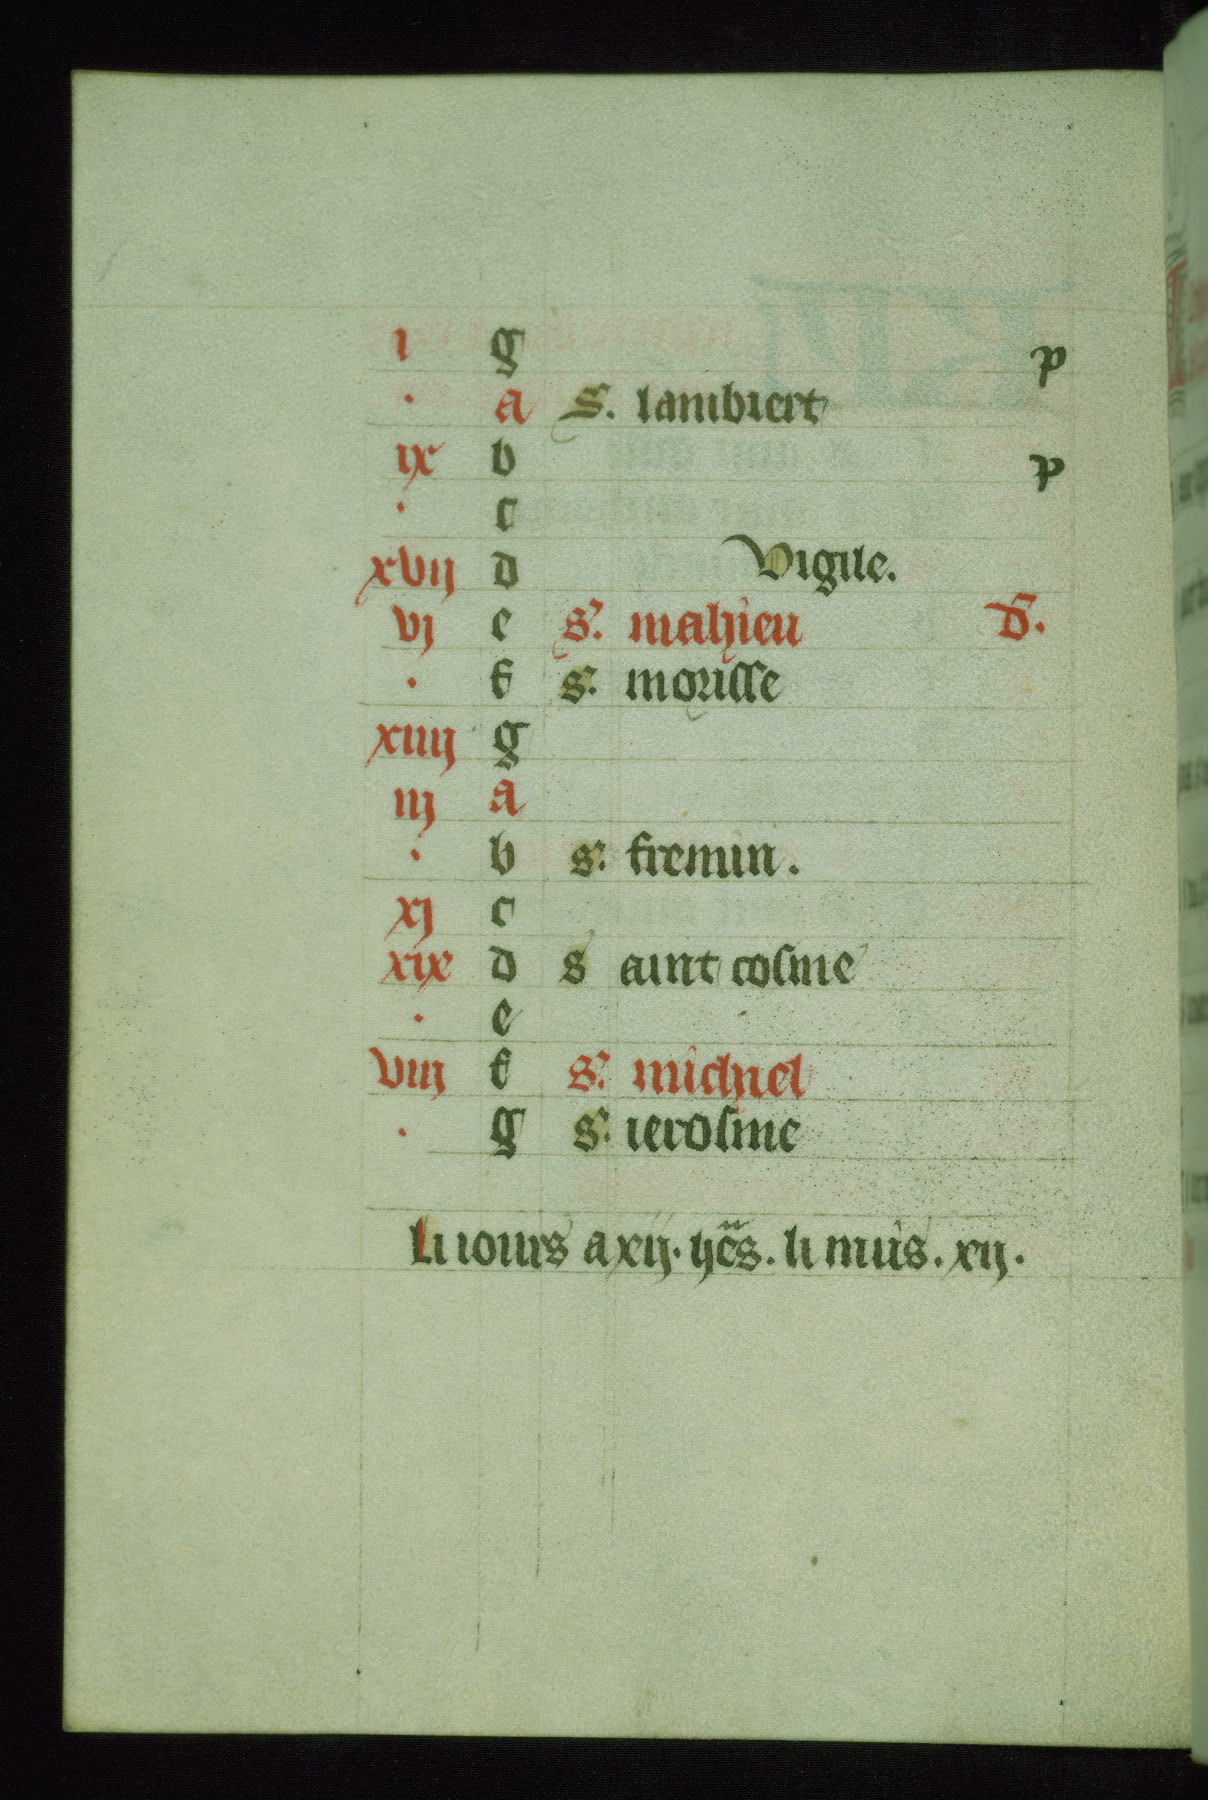 i g p
. a S. lambiert
ix b p
. c
xvij d Vigile.
vj e s. mahieu d.
. f s. morisse
xiiij g
iij a
. b s. fremin.
xj c
xix d s aint cosme
. e
viij f s. michiel
. g s. ierosme
li iours a xij. hes. li nuis. xij.